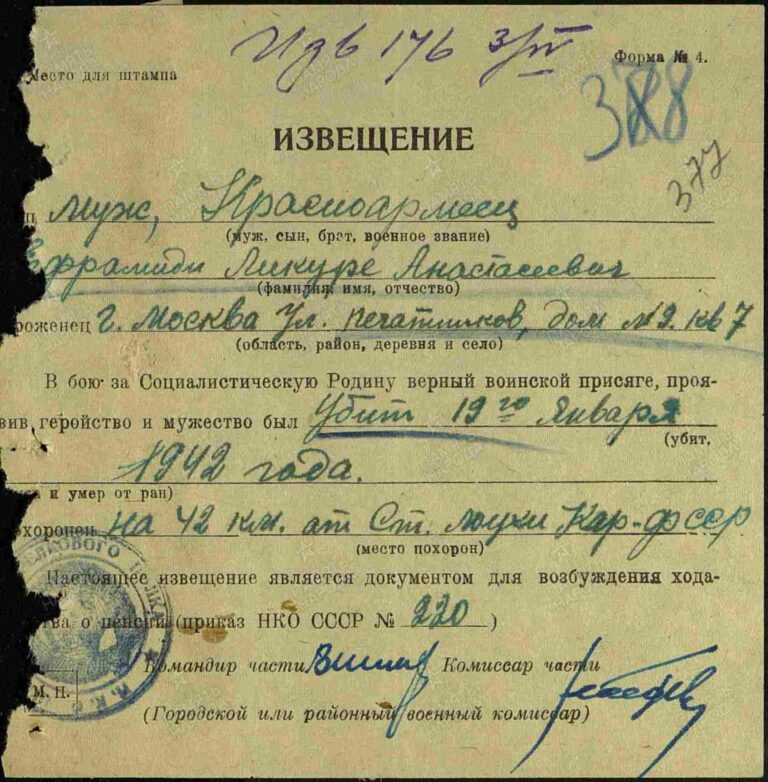 Форма № 4.
Место для штампа
ИЗВЕЩЕНИЕ
377
муж, Красноармеец
(муж, сын, брат, военное звание)
Ликург Анастасевич
(фамилия, имя, отчество)
роженец г. Москва ул. Печатников, дом № 9. кв 7
(область, район, деревня и село)
В бою за Социалистическую Родину верный воинской присяге, прояв-
вив геройство и мужество был Убит 19го Января
(убит,
1942 года.
и умер от ран)
хоронен на 42 км. от Ст. Лоухи Кар-фсср
(место похорон)
Настоящее извещение является документом для возбуждения хода-
тва о пенсии (приказ НКО СССР № 220)
Командир части Комиссар части
М. П.
(Городской или районный военный комиссар)